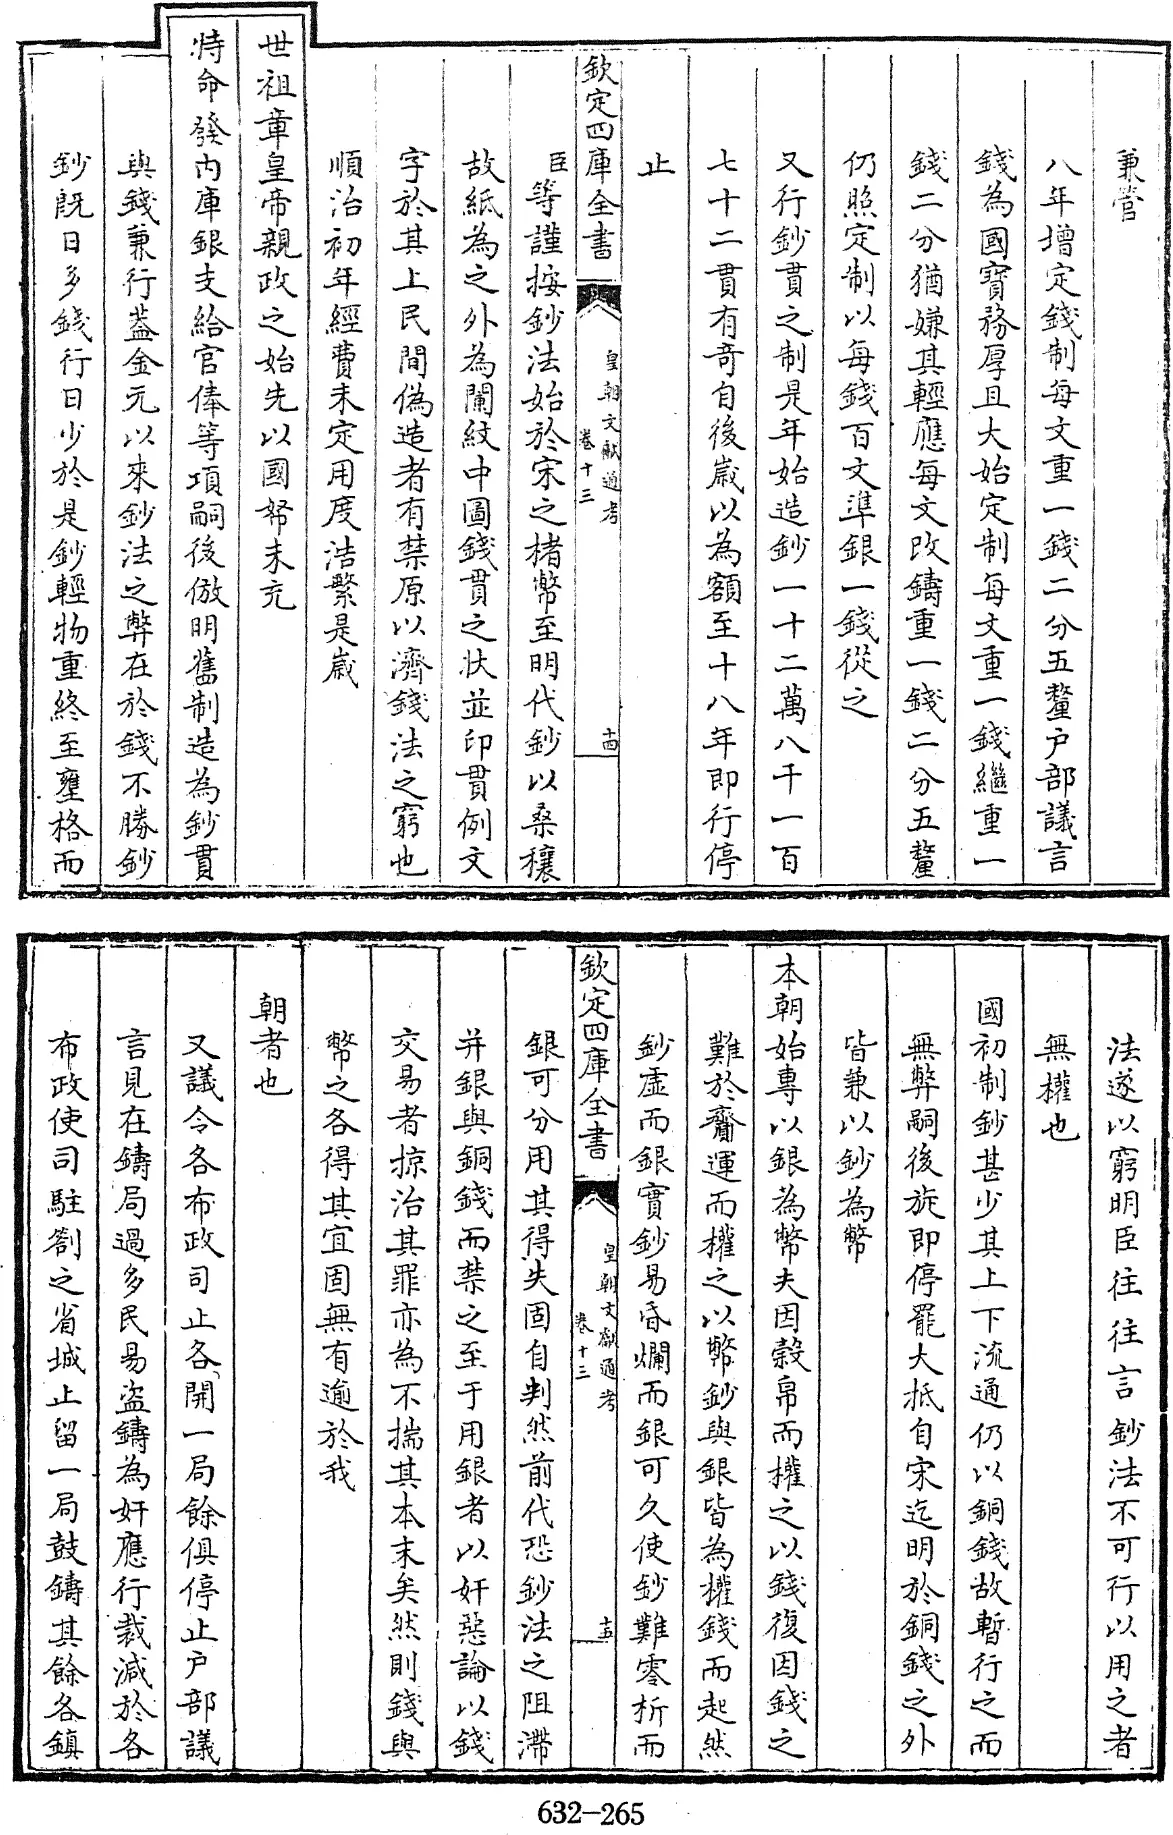 兼管
八年增定錢制每文重一錢二分五釐户部議言
錢為國寶務厚且大始定制每文重一錢繼重一
錢二分猶嫌其輕應每文改鑄重一錢二分五釐
仍照定制以每錢百文準銀一錢從之
又行鈔貫之制是年始造鈔一十二萬八千一百
七十二貫有奇自後嵗以為額至十八年即行停
止
欽定四庫全書
皇朝文獻通考
卷十三
十四
臣等謹按鈔法始於宋之楮幣至明代鈔以桑穰
故紙為之外為闌紋中圖錢貫之狀並印貫例文
字於其上民間偽造者有禁原以濟錢法之窮也
順治初年經費未定用度浩繁是嵗
世祖章皇帝親政之始先以國帑未充
特命發内庫銀支給官俸等項嗣後倣明舊制造為鈔貫
與錢兼行葢金元以來鈔法之弊在於錢不勝鈔
鈔旣日多錢行日少於是鈔輕物重終至壅格而
法遂以窮明臣往往言鈔法不可行以用之者
無權也
國初制鈔甚少其上下流通仍以銅錢故暫行之而
無弊嗣後旋即停罷大抵自宋迄明於銅錢之外
皆兼以鈔為幣
本朝始專以銀為幣夫因穀帛而權之以錢復因錢之
難於齎運而權之以幣鈔與銀皆為權錢而起然
鈔虛而銀實鈔易昏爛而銀可久使鈔難零析而
欽定四庫全書
皇朝文獻通考
卷十三
十五
銀可分用其得失固自判然前代恐鈔法之阻滯
并銀與銅錢而禁之至于用銀者以奸惡論以錢
交易者掠治其罪亦為不揣其本末矣然則錢與
幣之各得其宜固無有逾於我
朝者也
又議令各布政司止各開一局餘俱停止户部議
言見在鑄局過多民易盜鑄為奸應行裁減於各
布政使司駐劄之省城止留一局鼓鑄其餘各鎮
632-265